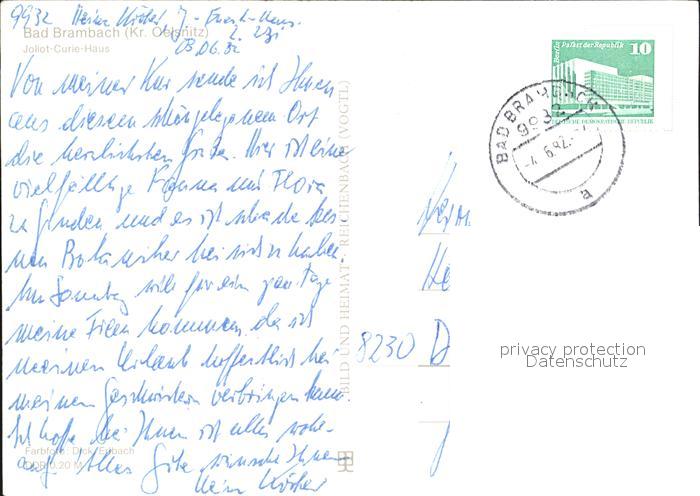 9932 Heinz Köcher J.-Curie-Haus.
Bad Brambach (Kr. Oelsnitz)
Joliot-Curie-Haus
03.06.82
Von meiner Kur sende ich Ihnen
aus diesem schön gelegenem Ort
die herzlichsten Grüße. Hier ist eine
vielfältige Fauna und Flora
zu finden und es ist schade kei-
nen Botaniker bei sich zu haben.
Am Sonntag will für ein paar Tage
meine Frau kommen, da ich
meinen Urlaub hoffentlich bei
meinen Geschwistern verbringen kann.
Ich hoffe bei Ihnen ist alles wohl-
auf. Alles Gute wünscht Ihnen
Heinz Köcher
Farbfoto: Dick, Erlbach
DDR 0,20 M
BILD UND HEIMAT REICHENBACH (VOGTL)
Berlin Palast der Republik
10
DEUTSCHE DEMOKRATISCHE REPUBLIK
BAD BRAMBACH
9932
-4.6.82.-
a
Herrn
He
8230 D
privacy protection
Datenschutz